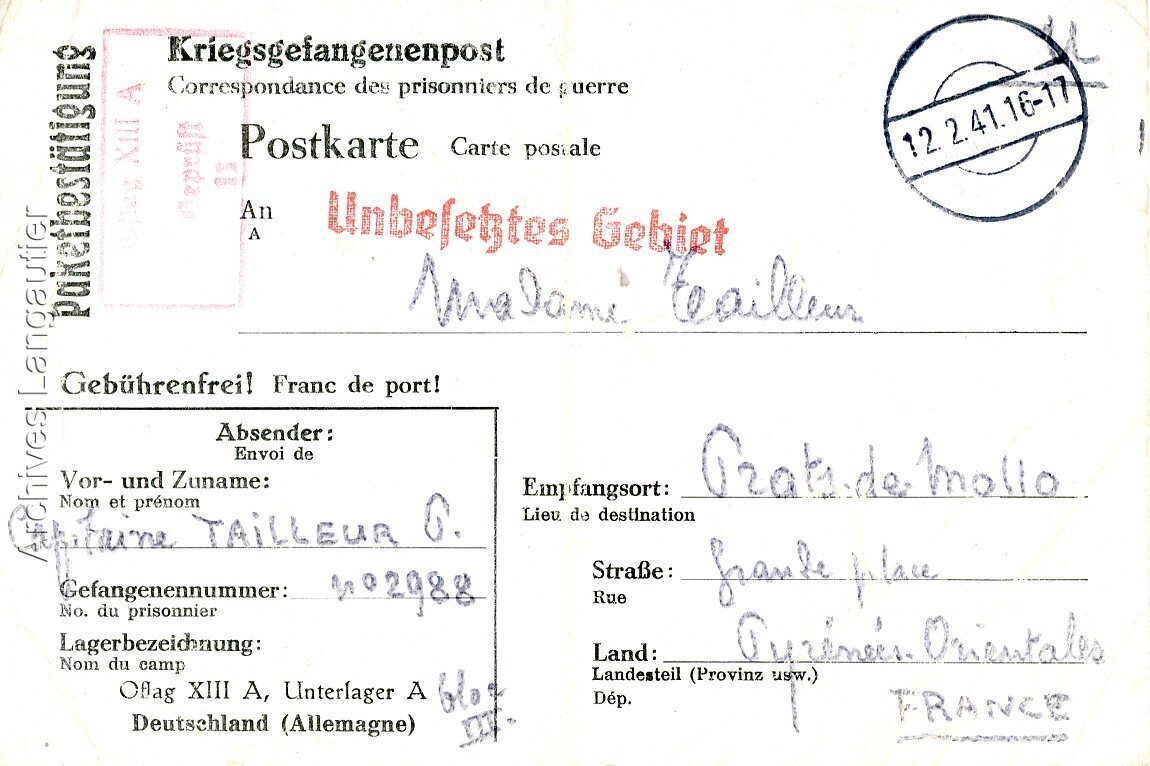 Kriegsgefangenenpost
Correspondance des prisonniers de guerre
Postkarte Carte postale
12.2.41.16-17
Paketbestätigung
Oflag XIII A
Geprüft
An
A
Unbesetztes Gebiet
Madame Tailleur
Gebührenfrei! Franc de port!
Absender:
Envoi de
Vor- und Zuname:
Nom et prénom
Capitaine TAILLEUR P.
Gefangenennummer: no 2988
No. du prisonnier
Lagerbezeichnung:
Nom du camp
Oflag XIII A, Unterlager A bloc
III.
Deutschland (Allemagne)
Empfangsort: Prats-de-Mollo
Lieu de destination
Straße: Grande place
Rue
Land: Pyrénées-Orientales
Landesteil (Provinz usw.)
Dép.
FRANCE
Archives Langautier